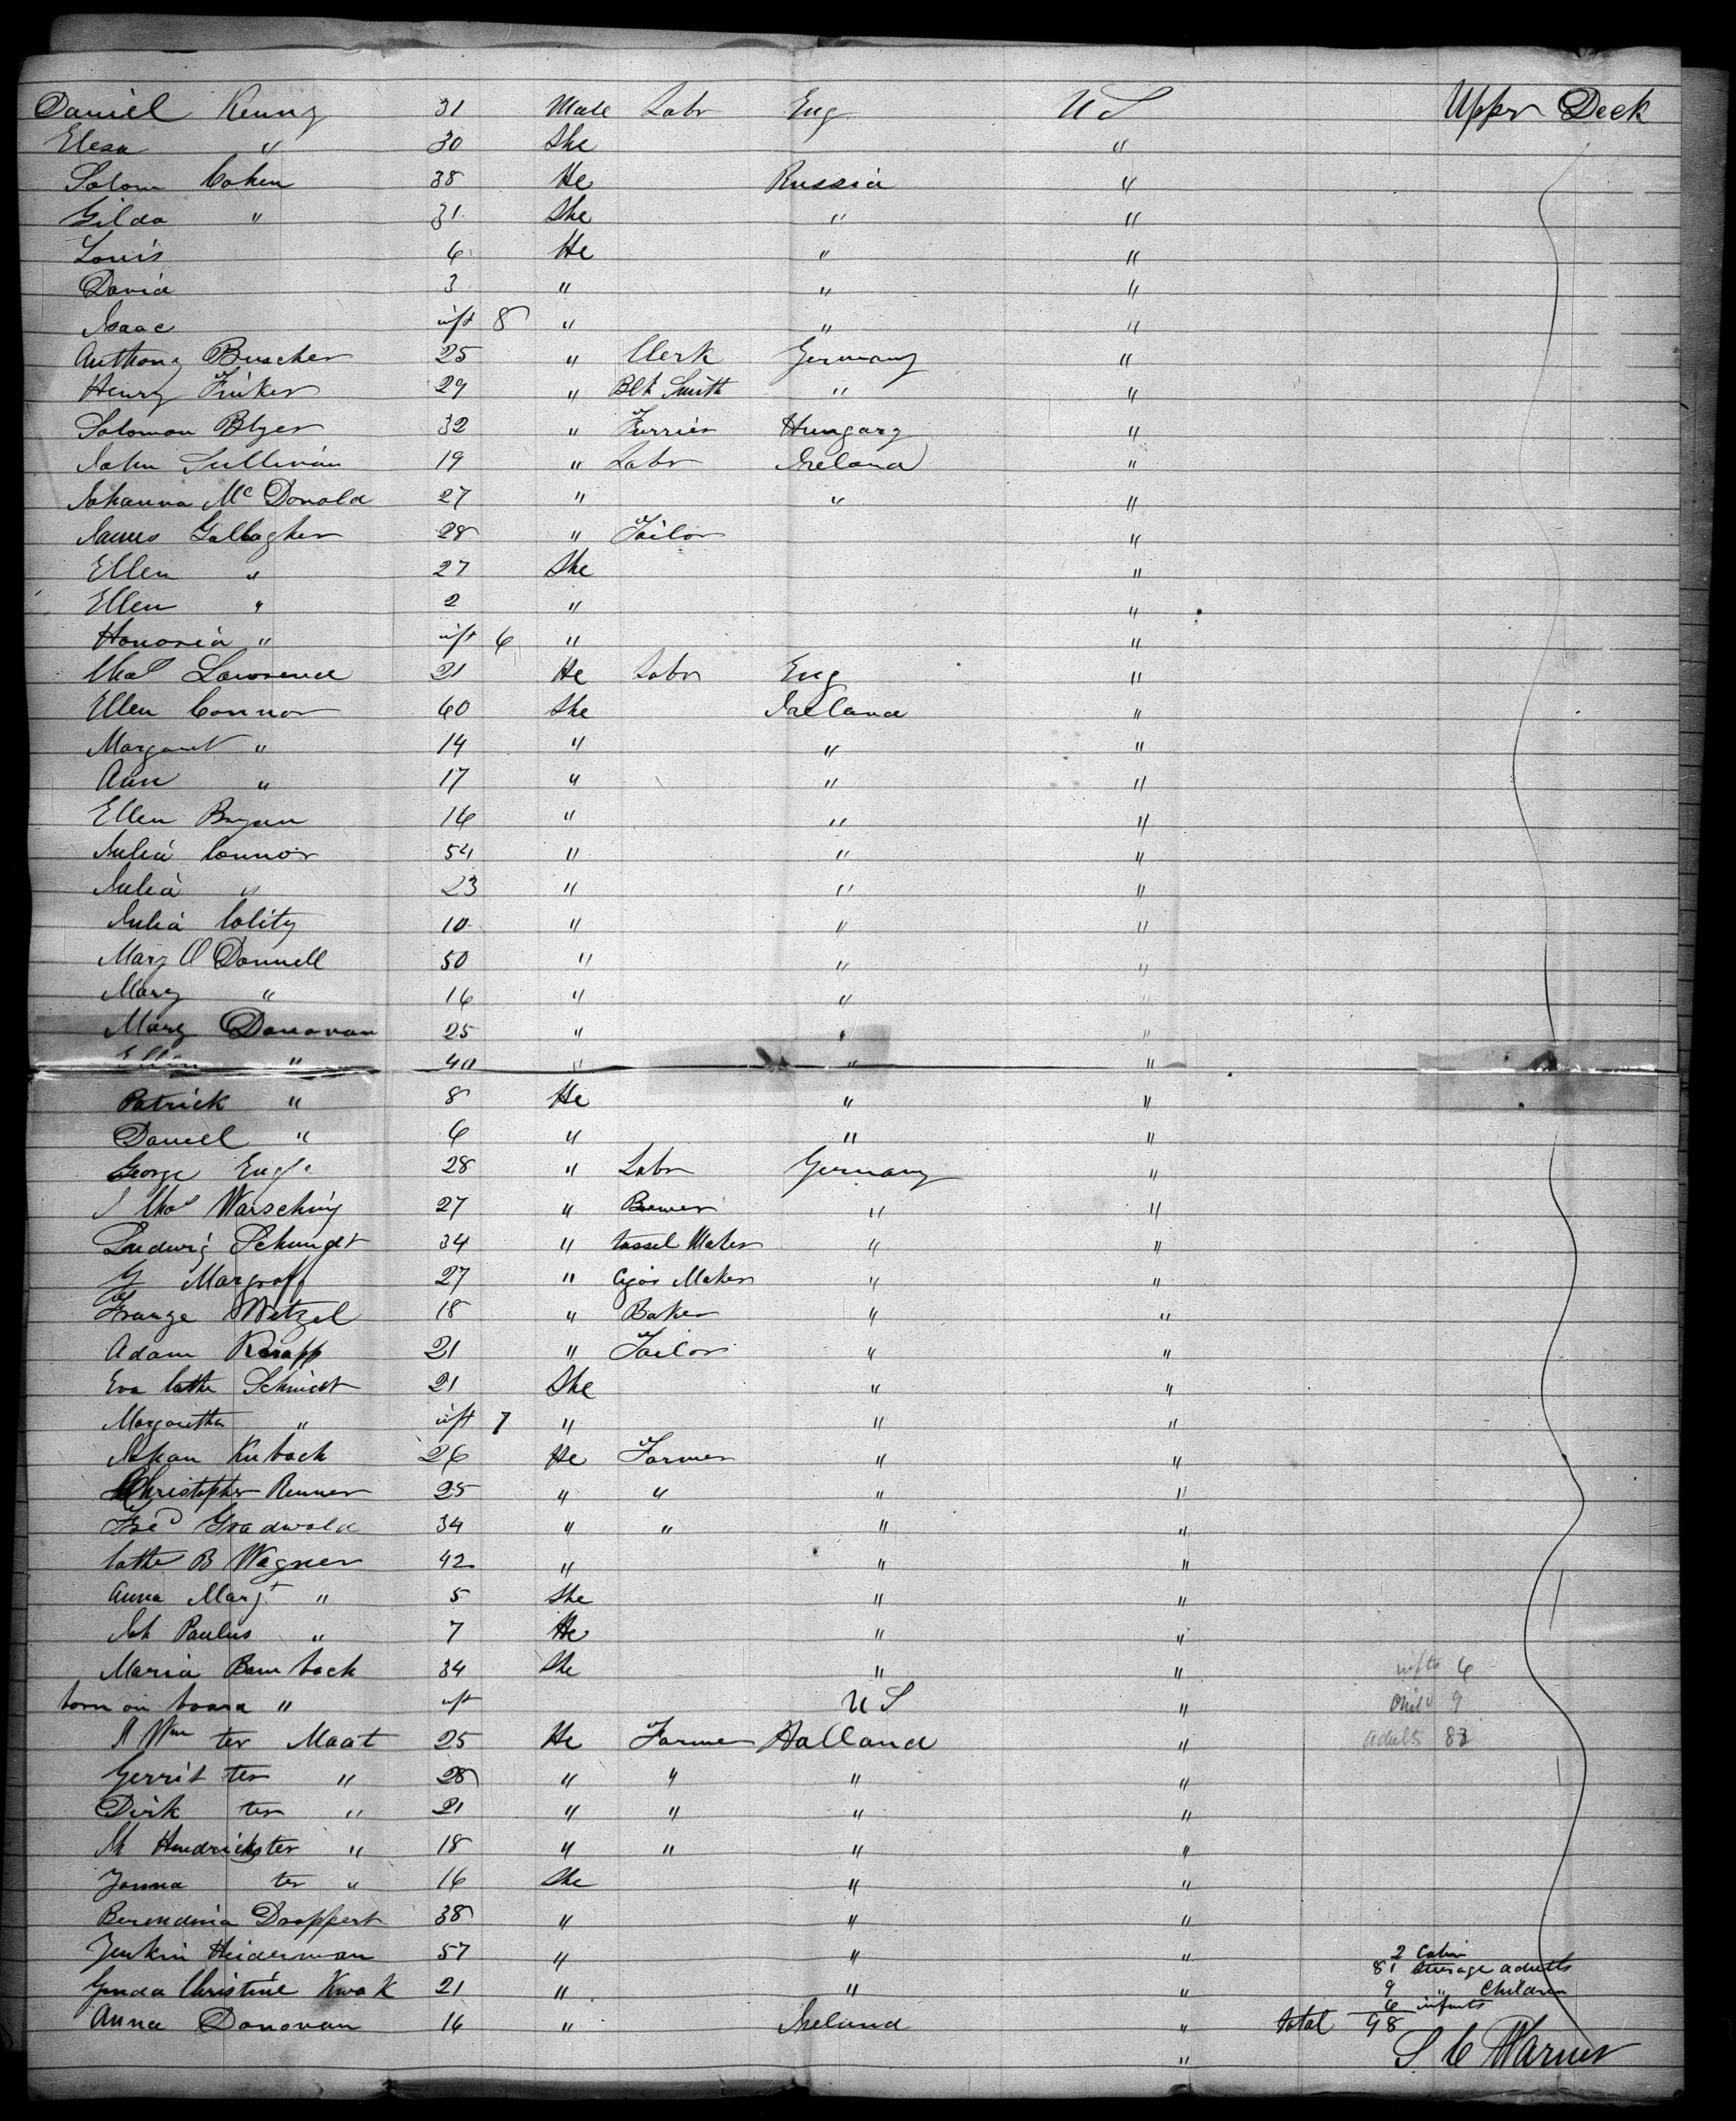 Daniel Kenny 31 Male Labr Eng U S Upper Deck
Elesa " 30 She "
Solom Cohen 38 He Russia "
Gilda " 31 She " "
Louis 6 He " "
David 3 " " "
Isaac inft 8 " " "
Anthony Buscher 25 " Clerk Germany "
Henry Finker 29 " Blk Smith " "
Solomon Blyer 32 " Furrier Hungary "
John Sullivan 19 " Labr Ireland "
Johanna Mc Donald 27 " " "
James Gallagher 28 " Tailor "
Ellen " 27 She "
Ellen " 2 " "
Honoria " inft 6 " "
Chas Lawrence 21 He Labr Eng "
Ellen Connor 60 She Ireland "
Margaret " 14 " " "
Ann " 17 " " "
Ellen Bryan 16 " " "
Julia Connor 54 " " "
Julia " 23 " " "
Julia Colity 10 " " "
Mary O Donnell 50 " " "
Mary " 16 " " "
Mary Donovan 25 " " "
Ellen " 40 " " "
Patrick " 8 He " "
Daniel " 6 " " "
George 28 " Labr Germany "
Chas Warsching 27 " Brewer " "
Ludwig Schmidt 34 " tassel Maker " "
G Margraff 27 " Cigar Maker " "
Franze Wetzel 18 " Baker " "
Adam Knapp 21 " Tailor " "
Eva Cathe Schmidt 21 She " "
Margaretha " inft 7 " " "
Johan Kubach 26 He Farmer " "
Christopher Renner 25 " " " "
Fred Gradwald 34 " " " "
Cathe B Wagner 42 " " "
Anna Margt " 5 She " "
Joh Paulus " 7 He " "
Maria Baumbach 34 She " " infts 6
born on board " inft U S " Child 9
Wm ter Maat 25 He Farmer Holland " adults 83
Gerrit ter " 28 " " " "
Dirk ter " 21 " " " "
Hendrick ter " 18 " " " "
Janna ter " 16 She " "
Berendina Droppert 38 " " "
Heiderman 57 " " " 2 Cabin
81 Steerage adults
Christine Kwak 21 " " " 9 " Children
6 infants
Anna Donovan 16 " Ireland " total 98
" S C Warner